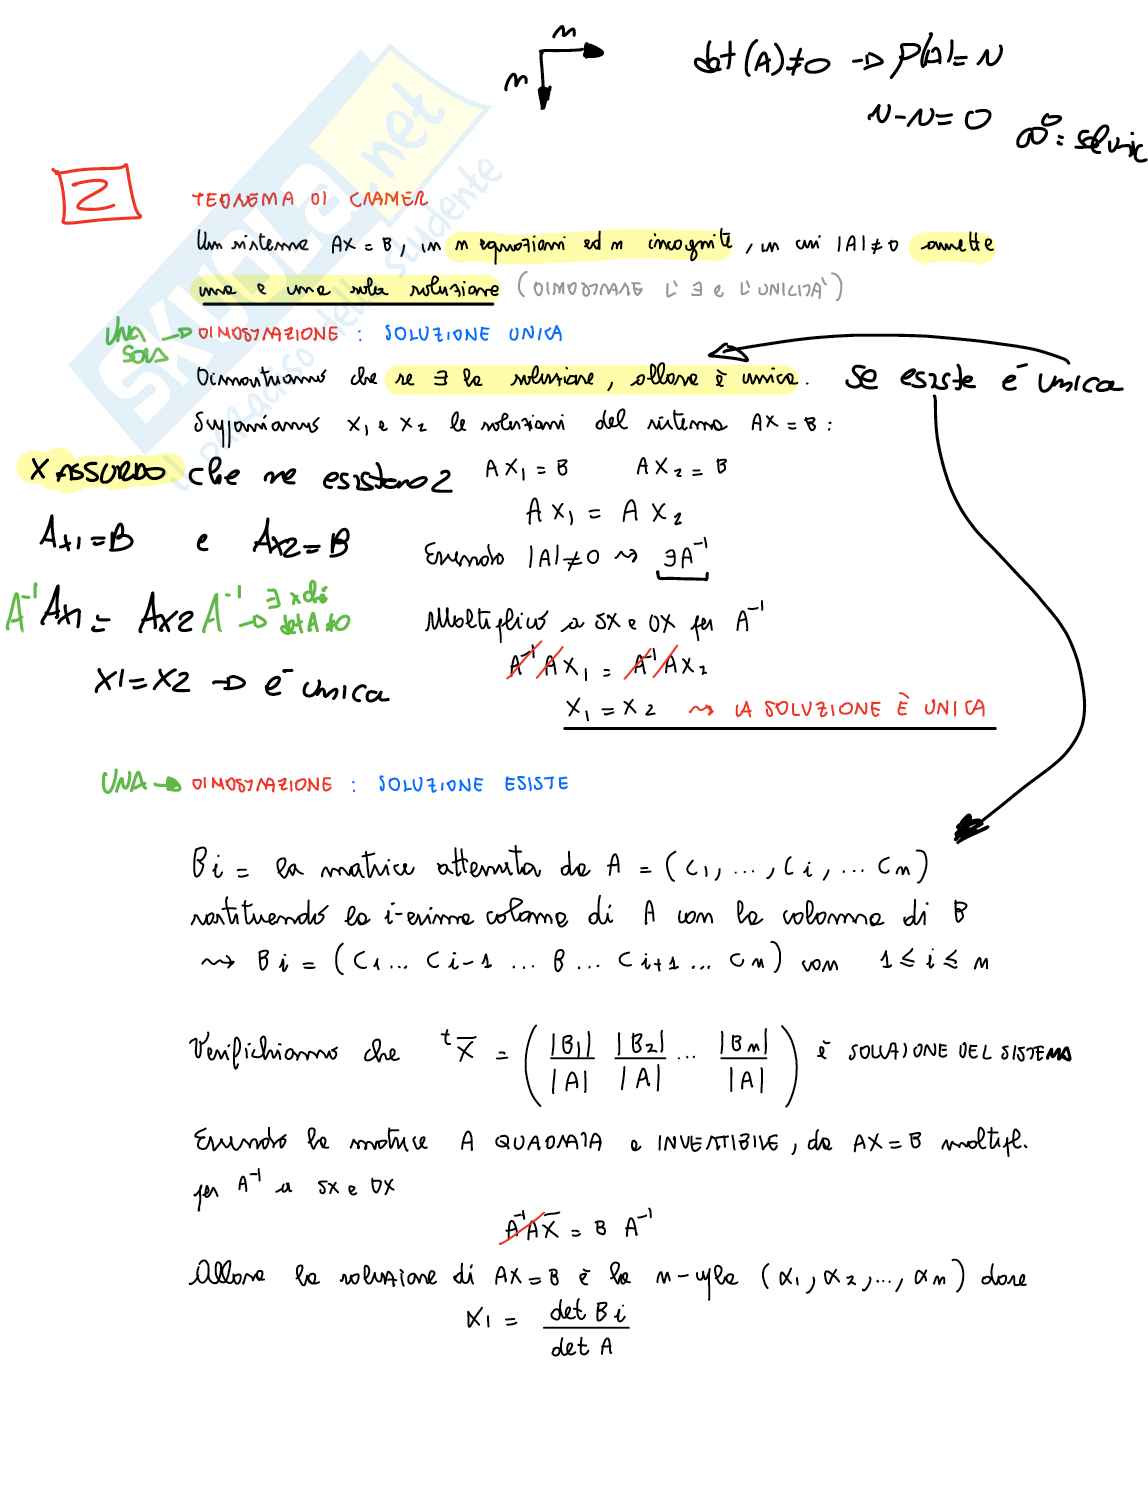 n
n
det (A) ≠ 0 → ρ(A) = N
N - N = 0
∞⁰ = sol unic
2
TEOREMA DI CRAMER
Un sistema AX = B, in n equazioni ed n incognite, in cui |A| ≠ 0 amette
una e una sola soluzione (DIMOSTRARE L' ∃ E L'UNICITA')
UNA SOLA → DIMOSTRAZIONE : SOLUZIONE UNICA
Dimostriamo che se ∃ la soluzione, allora è unica. Se esiste è unica
Supponiamo X₁ e X₂ le soluzioni del sistema AX = B :
X ASSURDO che ne esistano 2
AX₁ = B AX₂ = B
AX₁ = AX₂
Ax1 = B e Ax2 = B
Essendo |A| ≠ 0 ⇝ ∃A⁻¹
A⁻¹Ax1 = Ax2 A⁻¹ → ∃ x chè det A ≠ 0
Moltiplico a SX e DX per A⁻¹
A⁻¹AX₁ = A⁻¹AX₂
X1 = X2 → è unica
X₁ = X₂ ⇝ LA SOLUZIONE È UNICA
UNA → DIMOSTRAZIONE : SOLUZIONE ESISTE
Bi = la matrice ottenuta da A = (C₁, ..., Ci, ... Cn)
sostituendo la i-esima colonna di A con la colonna di B
⇝ Bi = (C₁ ... Ci-1 ... B ... Ci+1 ... Cn) con 1 ≤ i ≤ n
Verifichiamo che ᵗX̄ = (|B₁|/|A| |B₂|/|A| ... |Bn|/|A|) è SOLUZIONE DEL SISTEMA
Essendo la matrice A QUADRATA e INVERTIBILE, da AX = B moltipl.
per A⁻¹ a SX e DX
A⁻¹AX̄ = B A⁻¹
Allora la soluzione di AX = B è la n-upla (α₁, α₂, ..., αn) dove
α₁ = det Bi / det A
SKUOLA.net
il paradiso dello studente